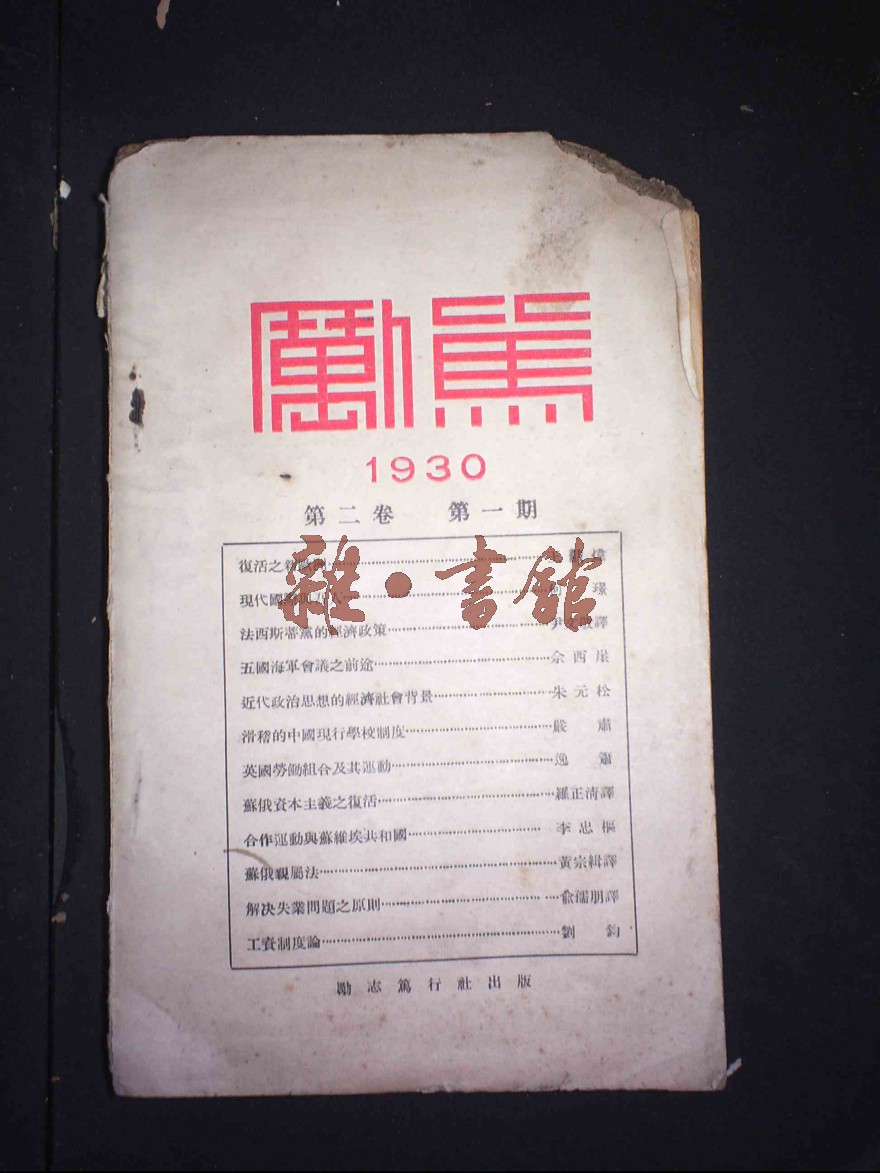 勵篤
1930
第二卷 第一期
復活之
現代國
法西斯蒂黨的經濟政策 尹 譯
五國海軍會議之前途 佘西崖
近代政治思想的經濟社會背景 朱元松
滑稽的中國現行學校制度 嚴肅
英國勞働組合及其運動 逸簫
蘇俄資本主義之復活 羅正清譯
合作運動與蘇維埃共和國 李忠樞
蘇俄親屬法 黃宗緝譯
解決失業問題之原則 俞孺朋譯
工資制度論 劉鈞
勵志篤行社出版
雜·書館